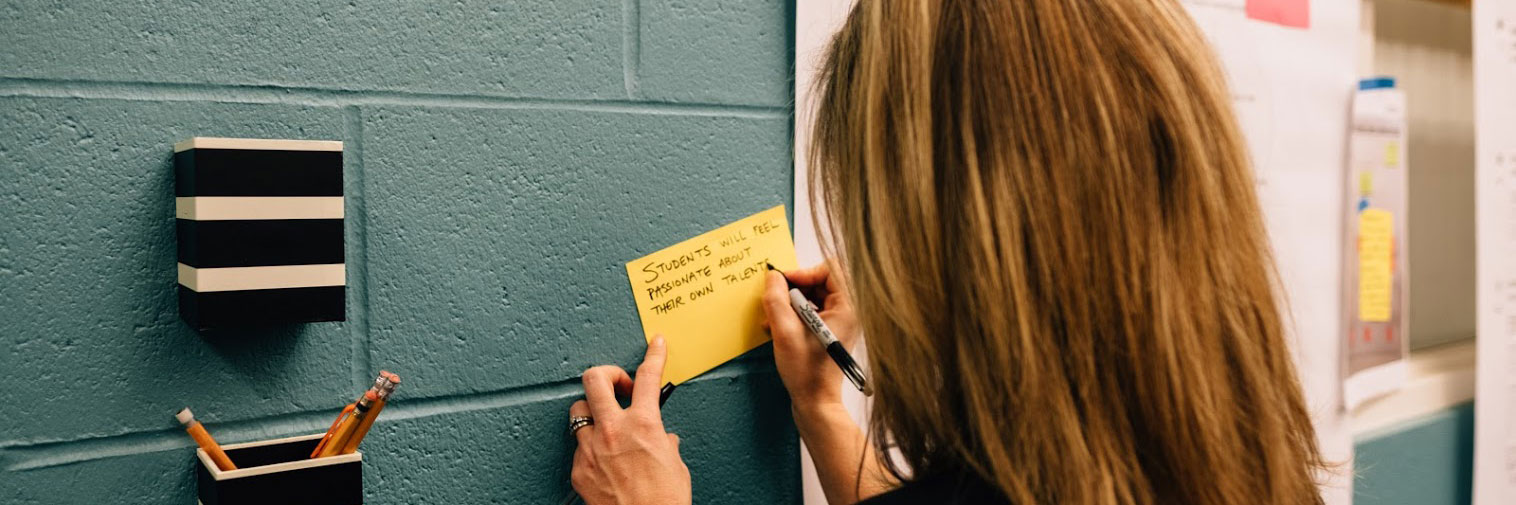 STUDENTS WILL FEEL
PASSIONATE ABOUT
THEIR OWN TALENTS